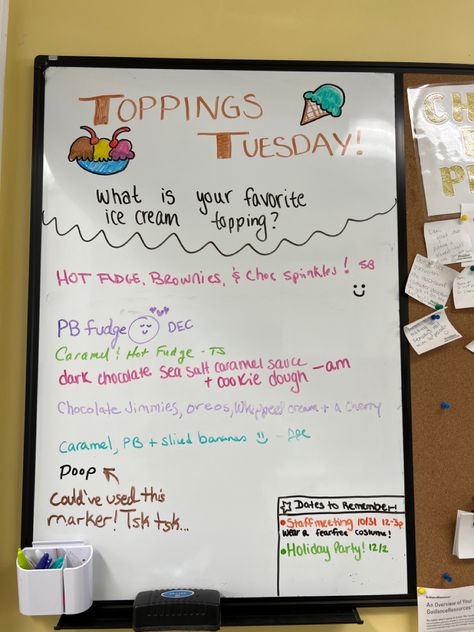 TOPPINGS
TUESDAY!
What is your favorite
ice cream topping?
HOT FUDGE, BROWNIES, & CHOC SPRINKLES! SB
PB fudge DEC
Caramel & Hot Fudge - TS
dark chocolate sea salt caramel sauce - am
+ cookie dough
Chocolate Jimmies, oreos, Whipped cream + a Cherry
Caramel, PB + slied bananas
Poop
Could've used this
marker! Tsk tsk...
Dates to Remember!
• Staff meeting 10/31 12-3p
Wear a fearfree costume!
• Holiday Party! 12/2
An Overview of Your